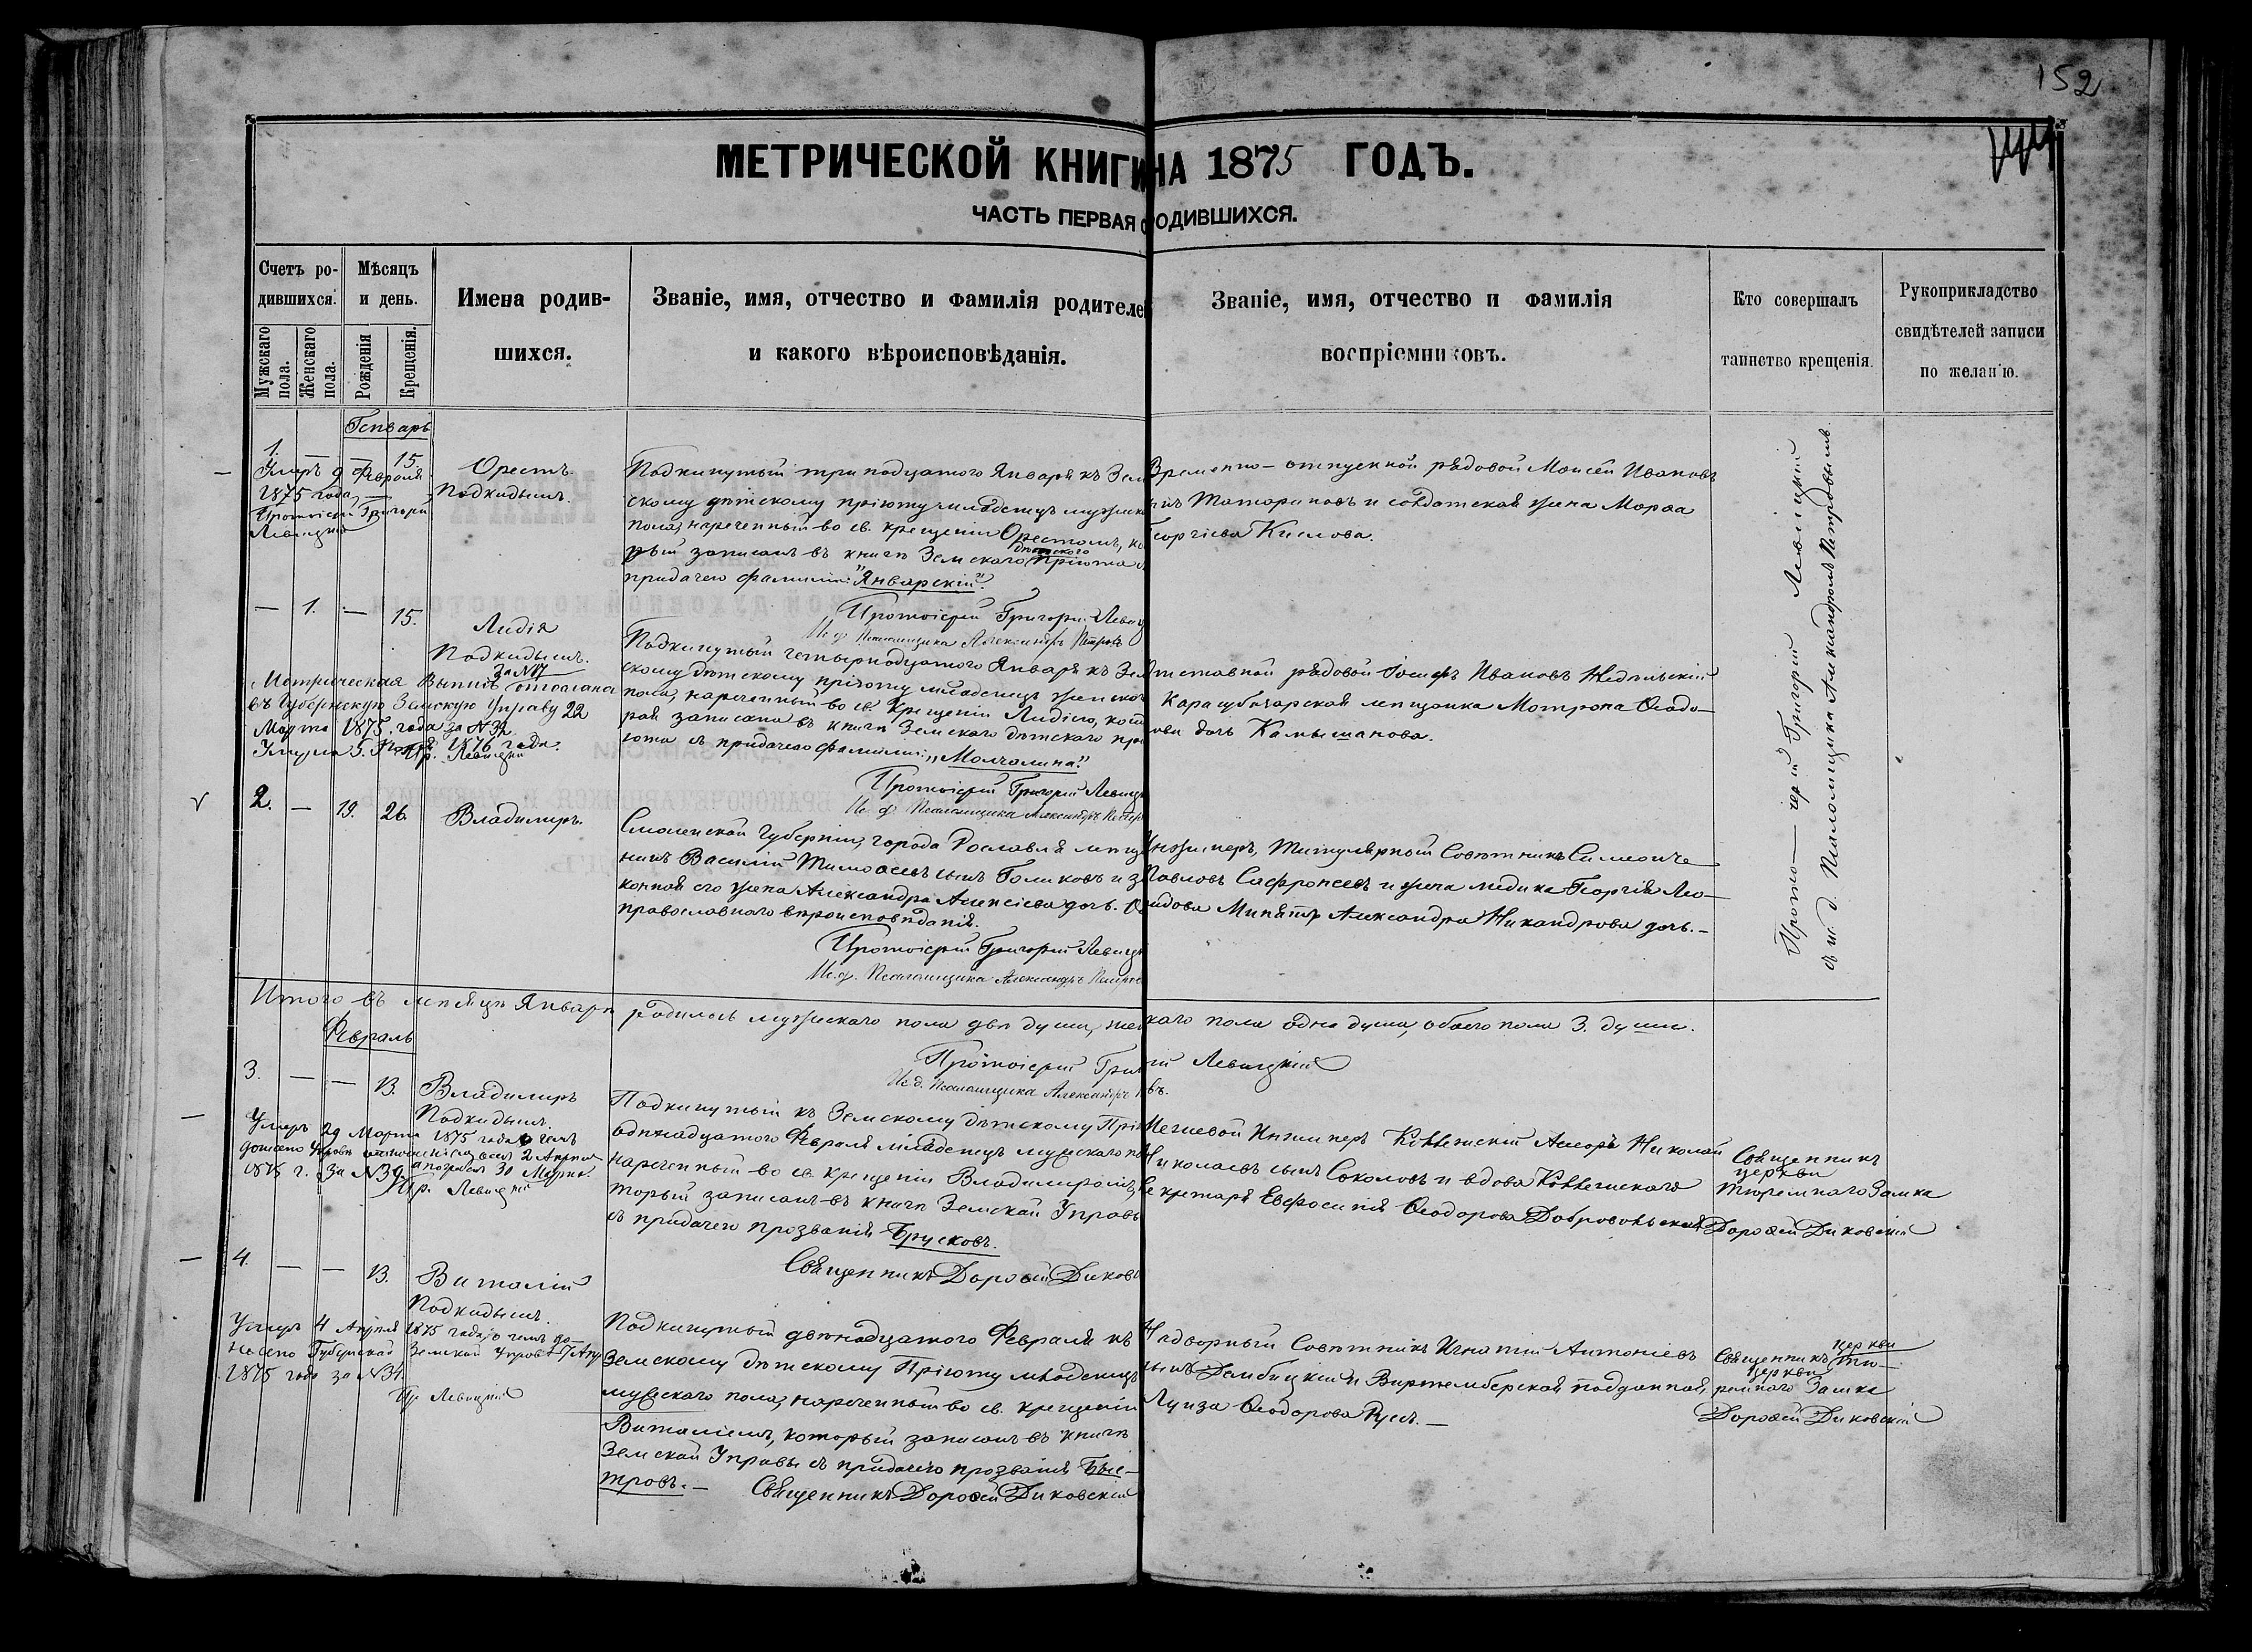 152
МЕТРИЧЕСКОЙ КНИГИ НА 1875 ГОДЪ.
ЧАСТЬ ПЕРВАЯ ОДИВШИХСЯ.
Счетъ ро-
дившихся.
Мужскаго пола.
Женскаго пола.
Мѣсяцъ
и день.
Рожденія
Крещенія.
Имена родив-
шихся.
Званіе, имя, отчество и фамилія родителе
и какого вѣроисповѣданія.
Званіе, имя, отчество и фамилія
воспріемниковъ.
Кто совершалъ
таинство крещенія.
Рукоприкладство
свидѣтелей записи
по желанію.
Генварь
1. — — 15.
Орестъ
Подкидышъ.
Умеръ 9 Февраля
1875 года
Протоіерей Григорій
Левицкій
Подкинутый тринадцатого Января къ Зем
скому дѣтскому пріюту младенецъ мужска
пола, нареченный во св. крещеніи Орестомъ, ко
рый записанъ въ книгѣ Земскаго дѣтскаго пріюта с
придачею фамиліи: "Январскій".
Протоіерей Григорій Левиц
Ис. д. Псаломщика Александръ Петровъ
Временно-отпускной рядовой Моисей Ивановъ
сынъ Татариновъ и солдатская жена Марѳа
Георгіева Кислова.
— 1. — 15.
Лидія
Подкидышъ.
За №17
Метрическая выпись отослана
въ Губернскую Земскую Управу 22
Марта 1875 года за №32
Умерла 5. 1876 года.
Пр. Левицкій
Подкинутый четырнадцатого Января къ Зем
скому дѣтскому пріюту младенецъ женска
пола, нареченный во св. крещеніи Лидіею, кот
рая записана въ книгѣ Земскаго дѣтскаго прі
юта съ придачею фамиліи: "Молчалина".
Протоіерей Григорій Левиц
Ис. д. Псаломщика Александръ Петр
Отставной рядовой Іосифъ Ивановъ Недѣльскій
Карасубазарская мещанка Матрона Ѳеодо-
рова дочь Камышанова.
2. — 19. 26.
Владимиръ.
Смоленской губерніи, города Рославля мещ
нинъ Василій Тимоѳеевъ сынъ Голиковъ и за
конная его жена Александра Алексіева дочь. Оба
православнаго вѣроисповѣданія.
Протоіерей Григорій Левиц
Ис. д. Псаломщика Александръ Петров
Инженеръ, Титулярный Совѣтникъ
Павловъ Сафроневъ и жена медика Георгія Лео-
нидова Александра Никандрова дочь.
Прото— іерей Григорій Левицкій
съ и. д. Псаломщика Александромъ Петровымъ.
Итого въ месяцѣ Январѣ родилось мужескаго пола двѣ души, женскаго пола одна душа, обоего пола 3. души.
Протоіерей Григорій Левицкій
Ис. д. Псаломщика Александръ въ.
Февраль
3. — — 13.
Владимиръ
Подкидышъ.
Умеръ 29 Марта 1875 года о чемъ
2 Апрѣля
1875 г. За №39. а погребенъ 30 Марта.
Пр. Левицкій
Подкинутый къ Земскому дѣтскому Прі
одинадцатого Февраля младенецъ мужескаго по
нареченный во св. крещеніи Владимиромъ,
торый записанъ въ книгѣ Земской Управы
съ придачею прозванія Брусковъ.
Священникъ Дороѳей Диковс
Межевой Инженеръ Коллежскій Асесоръ Николай
Николаевъ сынъ Соколовъ и вдова Коллежскаго
Секретаря Евфросинія Ѳеодорова Добровольская
Священникъ
церкви
тюремнаго Замка
Дороѳей Диковскій
4. — — 13.
Виталій
Подкидышъ.
Умеръ 4 Апрѣля 1875 года, о чемъ до-
несено Губернской Земской Управѣ 7 Апр
1875 года за №34.
Пр. Левицкій
Подкинутый двенадцатого Февраля къ
Земскому дѣтскому Пріюту младенецъ
мужескаго пола, нареченный во св. крещеніи
Виталіемъ, который записанъ въ книгѣ
Земской Управы съ придачею прозванія Быс-
тровъ. — Священникъ Дороѳей Диковскій
Надворный Совѣтникъ Игнатій Антоніевъ
сынъ Дембицкій и Виртембергская подданная,
Луиза Ѳеодорова Русъ. —
церкви
Священникъ тю-
церкви
ремнаго Замка
Дороѳей Диковскій